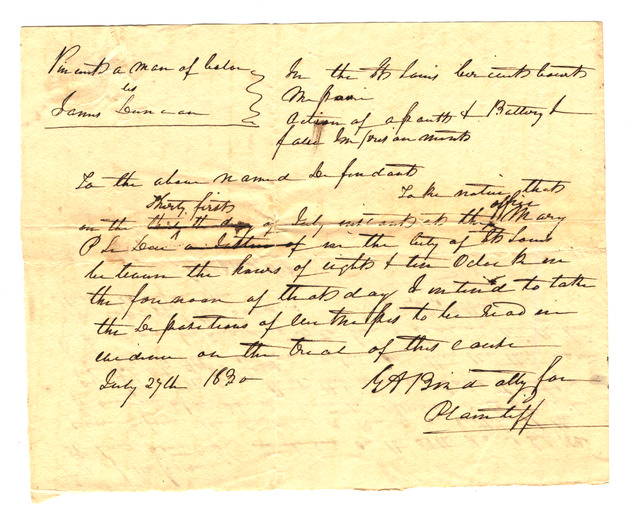 Vincent a man of Color
vs
James Duncan
In the St Louis Circuit Court
Missouri
Action of assault & Battery &
false Imprisonment
To the above named Defendant
Take notice that
thirty first office
on the day of July instant at the Mary
P Le Duc a Letters of in the City of St Louis
between the hours of eight & ten Oclock in
the forenoon of that day I intend to take
the Depositions of witnesses to be read in
evidence on the trial of this cause
July 27th 1830
G A Bird atty for
Plaintiff